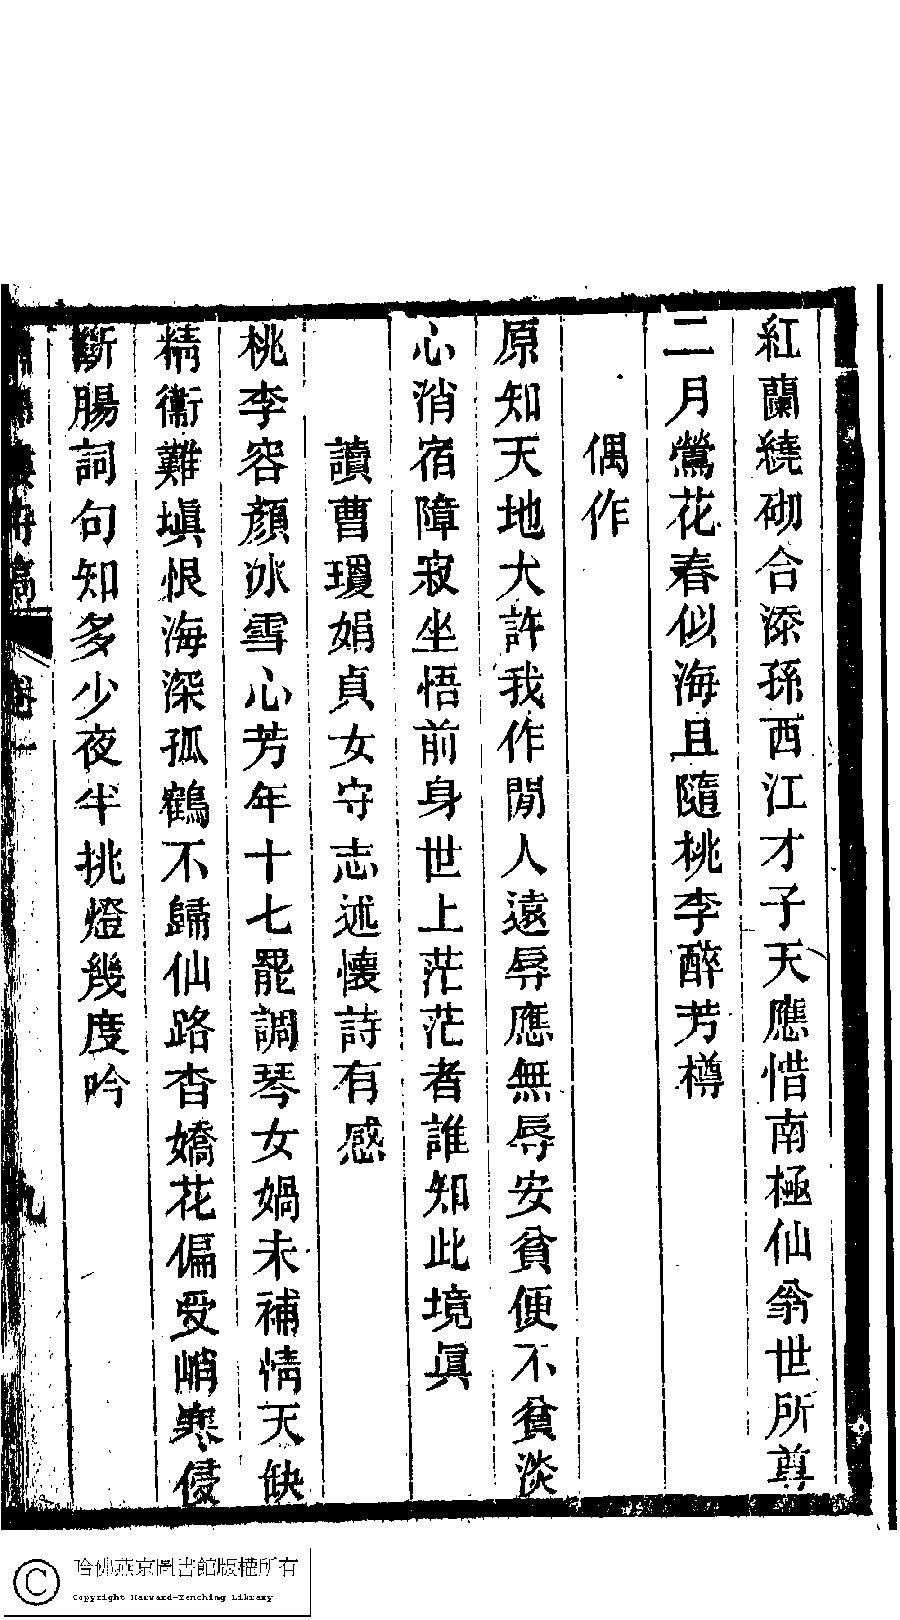 紅蘭繞砌合添孫西江才子天應惜南極仙翁世所尊
二月鶯花春似海且隨桃李醉芳樽
偶作
原知天地大許我作閒人遠辱應無辱安貧便不貧淡
心消宿障寂坐悟前身世上茫茫者誰知此境眞
讀曹瓊娟貞女守志述懷詩有感
桃李容顏冰雪心芳年十七罷調琴女媧未補情天缺
精衞難塡恨海深孤鶴不歸仙路杳嬌花偏受峭寒侵
斷腸詞句知多少夜半挑燈幾度吟
卷一
九
哈佛燕京圖書館版權所有
Copyright Harvard-Yenching Library